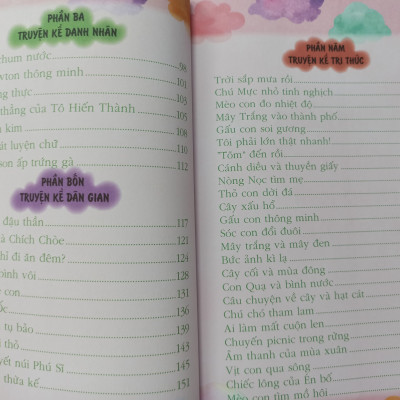 PHẦN BA
TRUYỆN KỂ DANH NHÂN
chum nước 98
wton thông minh 101
g thực 103
thẳng của Tô Hiến Thành 105
i kim 108
át luyện chữ 110
son ấp trứng gà 112
PHẦN BỐN
TRUYỆN KỂ DÂN GIAN
đậu thần 117
à Chích Chòe 121
hỉ đi ăn đêm? 124
bình vôi 128
y con 131
ốc 135
tụ bảo 139
i thỏ 143
yết núi Phú Sĩ 145
thừa kế 151
PHẦN NĂM
TRUYỆN KỂ TRI THỨC
Trời sắp mưa rồi
Chú Mực nhỏ tinh nghịch
Mèo con đo nhiệt độ
Mây Trắng vào thành phố
Gấu con soi gương
Tôi phải lớn thật nhanh!
"Tôm" đến rồi
Cánh diều và thuyền giấy
Nòng Nọc tìm mẹ
Thỏ con dời đá
Cây xấu hổ
Gấu con thông minh
Sóc con đổi đuôi
Mây trắng và mây đen
Bức ảnh kì lạ
Cây cối và mùa đông
Con Quạ và bình nước
Câu chuyện về cây và hạt cát
Chú chó tham lam
Ai làm mất cuộn len
Chuyến picnic trong rừng
Âm thanh của mùa xuân
Vịt con qua sông
Chiếc lông của Én bố
Mèo con tìm mồ hôi